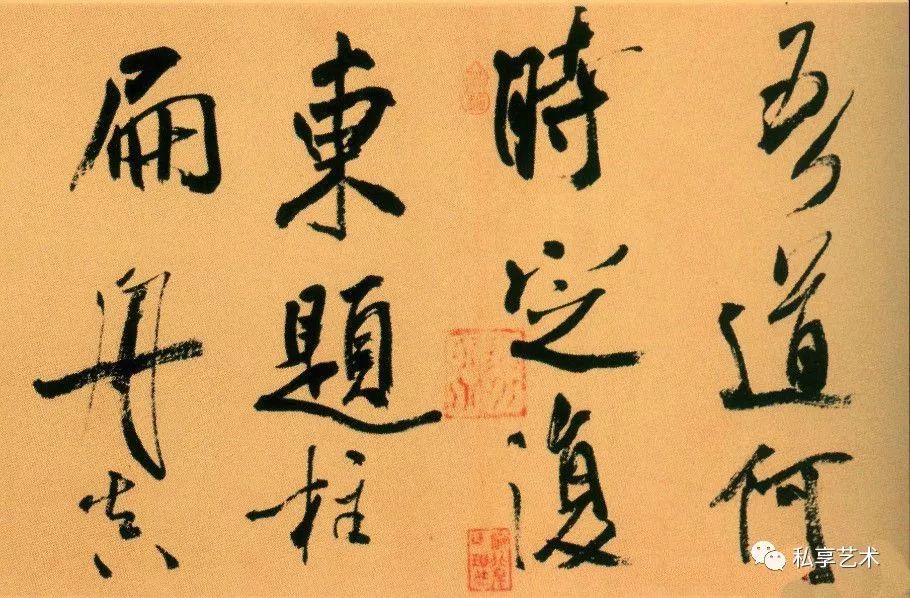 吾道何
時定復
東題柱
扁舟真
私享艺术